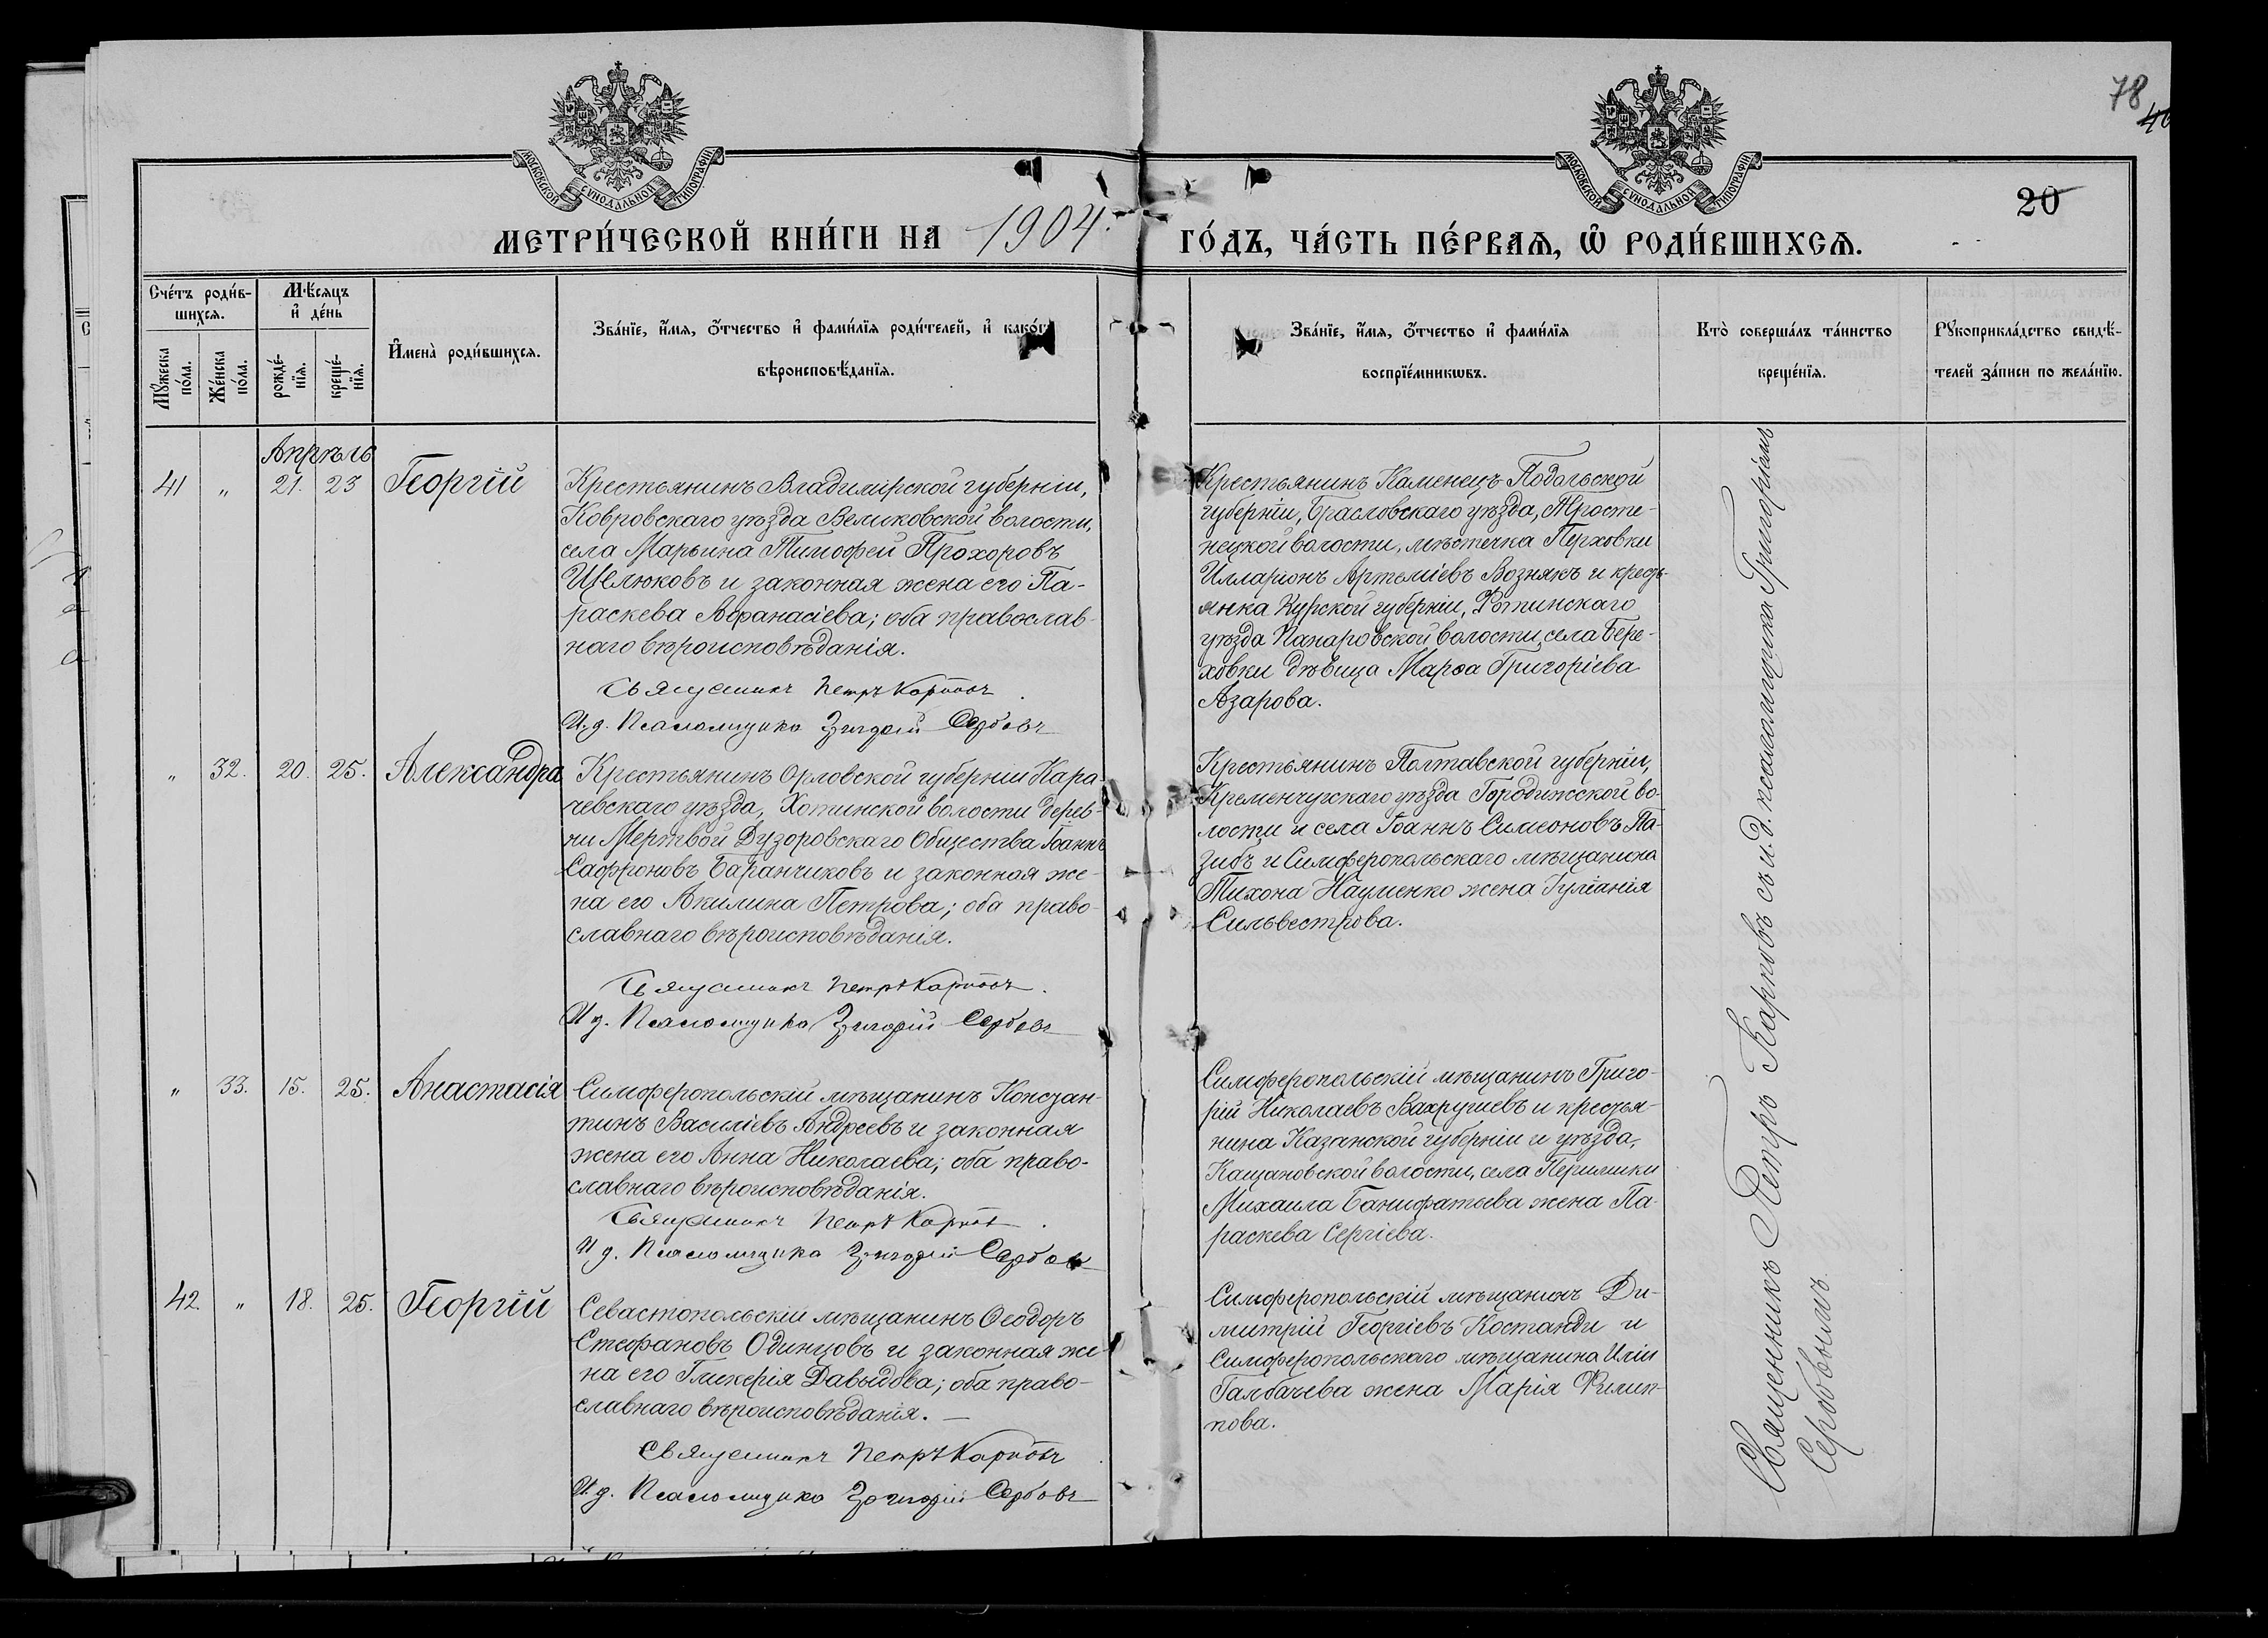 78
МОСКОВСКОЙ СѴНОДАЛЬНОЙ ТИПОГРАФІИ
МОСКОВСКОЙ СѴНОДАЛЬНОЙ ТИПОГРАФІИ
20
МЕТРИ́ЧЕСКОЙ КНИ́ГИ НА 1904. ГО́ДЪ, ЧА́СТЬ ПЕ́РВАЯ, Ѿ РОДИ́ВШИХСЯ.
Сче́тъ роди́в-
шихся.
Мѣ́сяцъ
и҆ де́нь
Мꙋ́жеска
по́ла.
Же́нска
по́ла.
рожде́-
нїя.
креще́-
нїя.
И҆мена̀ роди́вшихся.
Зва́нїе, и҆́мя, ѻ҆́тчество и҆ фами́лїя роди́телей, и҆ како́гѡ
вѣроисповѣ́данїя.
Зва́нїе, и҆́мя, ѻ҆́тчество и҆ фами́лїя
воспрїе́мникѡвъ.
Кто̀ соверша́лъ та́инство
креще́нїя.
Рꙋкоприкла́дство свидѣ́-
телей за́писи по жела́нїю.
Апрѣль
41 " 21. 23 Георгій
Крестьянинъ Владимірской губерніи,
Ковровскаго уѣзда Великовской волости,
села Марьина Тимофей Прохоровъ
Щелюковъ и законная жена его Па-
раскева Аѳанасіева; оба православ-
наго вѣроисповѣданія.
Священникъ Петръ Карповъ.
И. д. Псаломщика Григорій Сербовъ
Крестьянинъ Каменецъ Подольской
губерніи, Брасловскаго уѣзда, Трости-
нецкой волости, мѣстечка Перховки
Илларіонъ Артеміевъ Вознякъ и кресть-
янка Курской губерніи,
уѣзда волости села Бере-
ховки дѣвица Марѳа Григоріева
Азарова.
" 32. 20. 25. Александра
Крестьянинъ Орловской губерніи Кара-
чевскаго уѣзда, Хотинской волости дерев-
ни Мертвой Дузоровскаго Общества Іоаннъ
Сафроновъ Баранчиковъ и законная же-
на его Акилина Петрова; оба право-
славнаго вѣроисповѣданія.
Священникъ Петръ Карповъ.
И д. Псаломщика Григорій Сербовъ
Крестьянинъ Полтавской губерніи,
Кременчугскаго уѣзда Городижской во-
лости и села Іоаннъ Симеоновъ Па-
зибъ и Симферопольскаго мѣщанина
Тихона Науменко жена Іуліанія
Сильвестрова.
" 33. 15. 25. Анастасія
Симферопольскій мѣщанинъ Констан-
тинъ Василіевъ Андреевъ и законная
жена его Анна Николаева; оба право-
славнаго вѣроисповѣданія.
Священникъ Петръ Карповъ.
И д. Псаломщика Григорій Сербовъ
Симферопольскій мѣщанинъ Григо-
рій Николаевъ Вахрушевъ и крестья-
нина Казанской губерніи и уѣзда,
Кащановской волости, села
Михаила Банифатьева жена Па-
раскева Сергіева.
42. " 18. 25. Георгій
Севастопольскій мѣщанинъ Ѳеодоръ
Стефановъ Одинцовъ и законная же-
на его Гликерія Давыдова; оба право-
славнаго вѣроисповѣданія. —
Священникъ Петръ Карповъ
И. д. Псаломщика Григорій Сербовъ
Симферопольскій мѣщанинъ Ди-
митрій Георгіевъ Костанди и
Симферопольскаго мѣщанина Иліи
Галбачева жена Марія Филип-
пова.
Священникъ Петръ Карповъ съ и. д. псаломщика Григоріемъ
Сербовымъ.